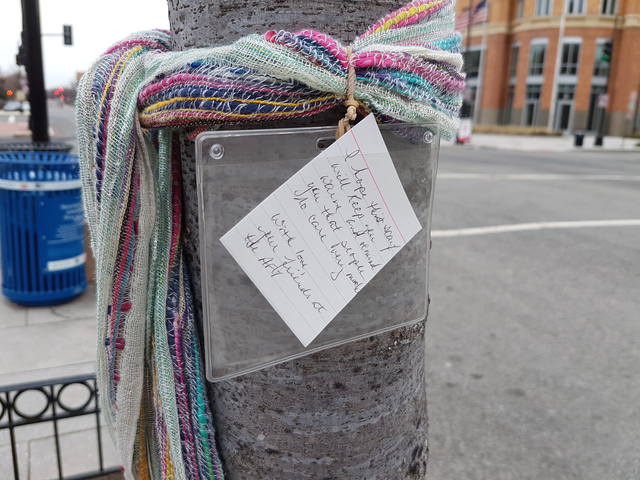 I hope this scarf
will keep you
warm and remind
you that people
do care
With love,
your friends at
the